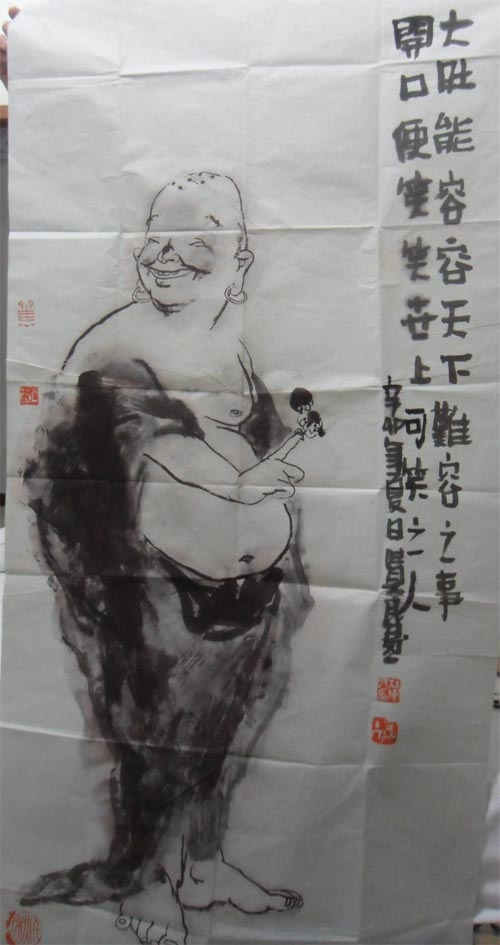 大肚能容容天下難容之事
開口便笑笑世上可笑之人
辛卯年夏日